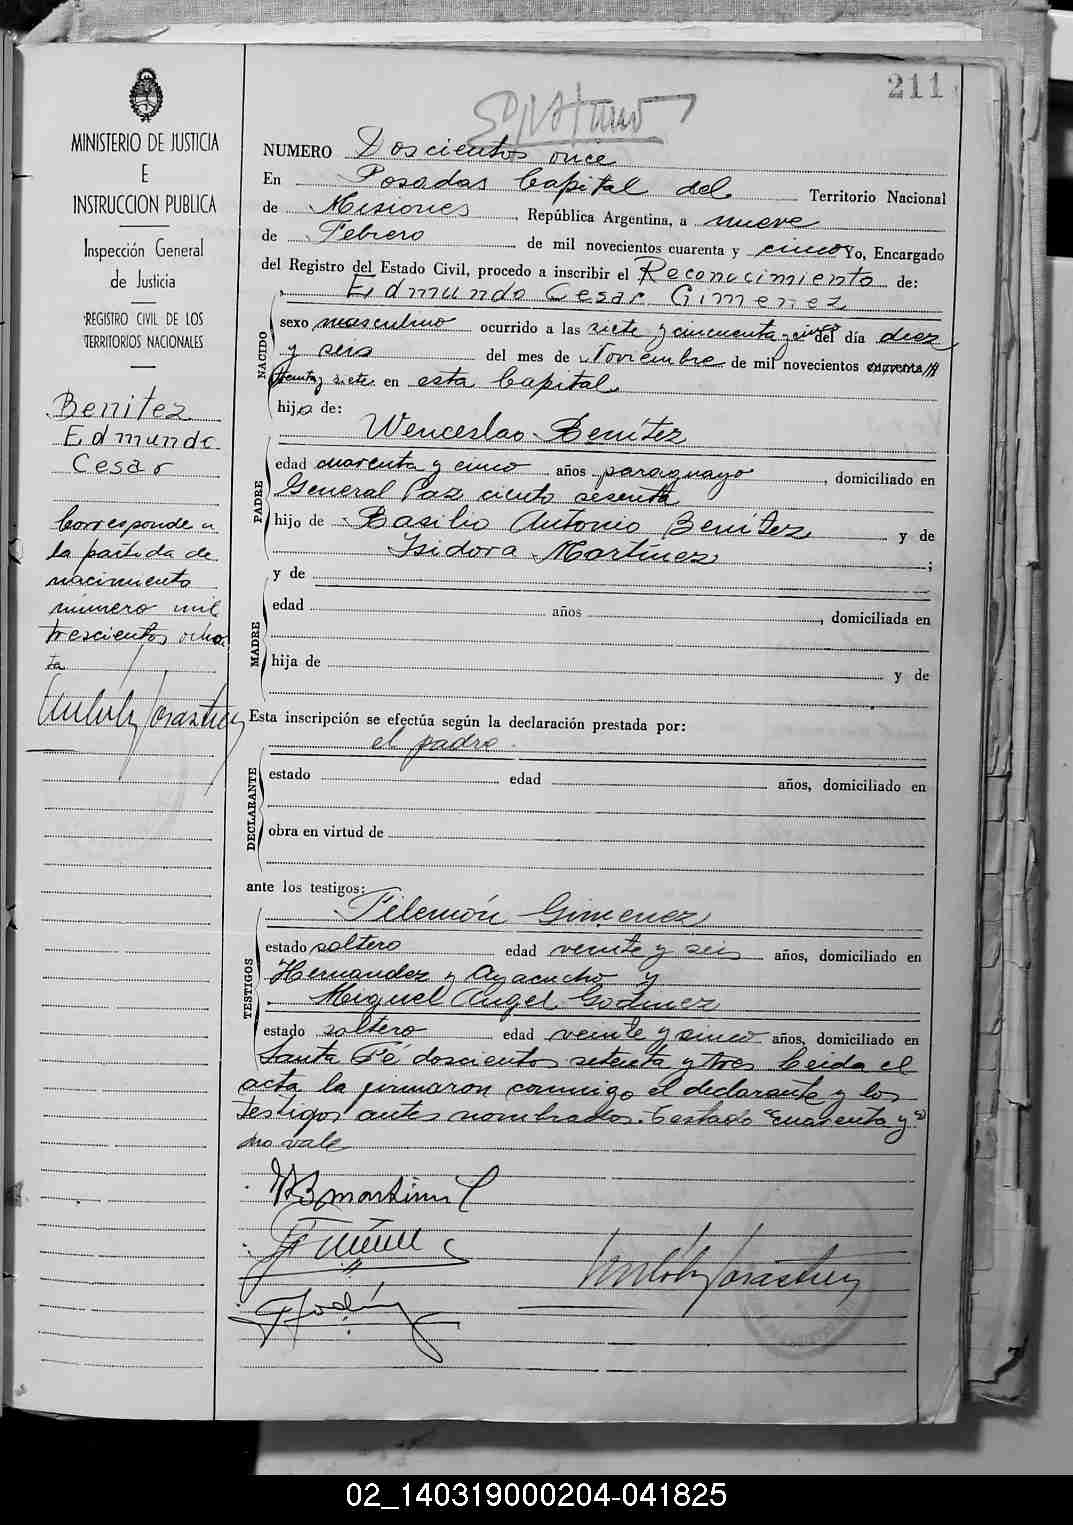 211
MINISTERIO DE JUSTICIA
E
INSTRUCCION PUBLICA
Inspección General
de Justicia
REGISTRO CIVIL DE LOS
TERRITORIOS NACIONALES
Benitez
Edmundo
Cesar
Corresponde a
la partida de
nacimiento
número mil
trescientos ochen
ta
NUMERO Doscientos once
En Posadas Capital del Territorio Nacional
de Misiones, República Argentina, a nueve
de Febrero de mil novecientos cuarenta y cinco Yo, Encargado
del Registro del Estado Civil, procedo a inscribir el Reconocimiento de:
Edmundo Cesar Gimenez
NACIDO
sexo masculino ocurrido a las siete y cincuenta y cinco del día diez
y seis del mes de Noviembre de mil novecientos cuarenta y
treinta y siete en esta Capital
hijo de:
Wenceslao Benítez
PADRE
edad cuarenta y cinco años paraguayo, domiciliado en
General Paz ciento sesenta
hijo de Basilio Antonio Benítez y de
Isidora Martínez;
y de
MADRE
edad años, domiciliada en
hija de y de
Esta inscripción se efectúa según la declaración prestada por:
el padre
DECLARANTE
estado edad años, domiciliado en
obra en virtud de
ante los testigos:
Filemón Gimenez
TESTIGOS
estado soltero edad veinte y seis años, domiciliado en
Hernandez y Ayacucho y
Miguel Angel Godinez
estado soltero edad veinte y cinco años, domiciliado en
Santa Fé doscientos setenta y tres Leida el
acta la firmaron conmigo el declarante y los
testigos antes nombrados. Testado "cuarenta y"
no vale
02_140319000204-041825